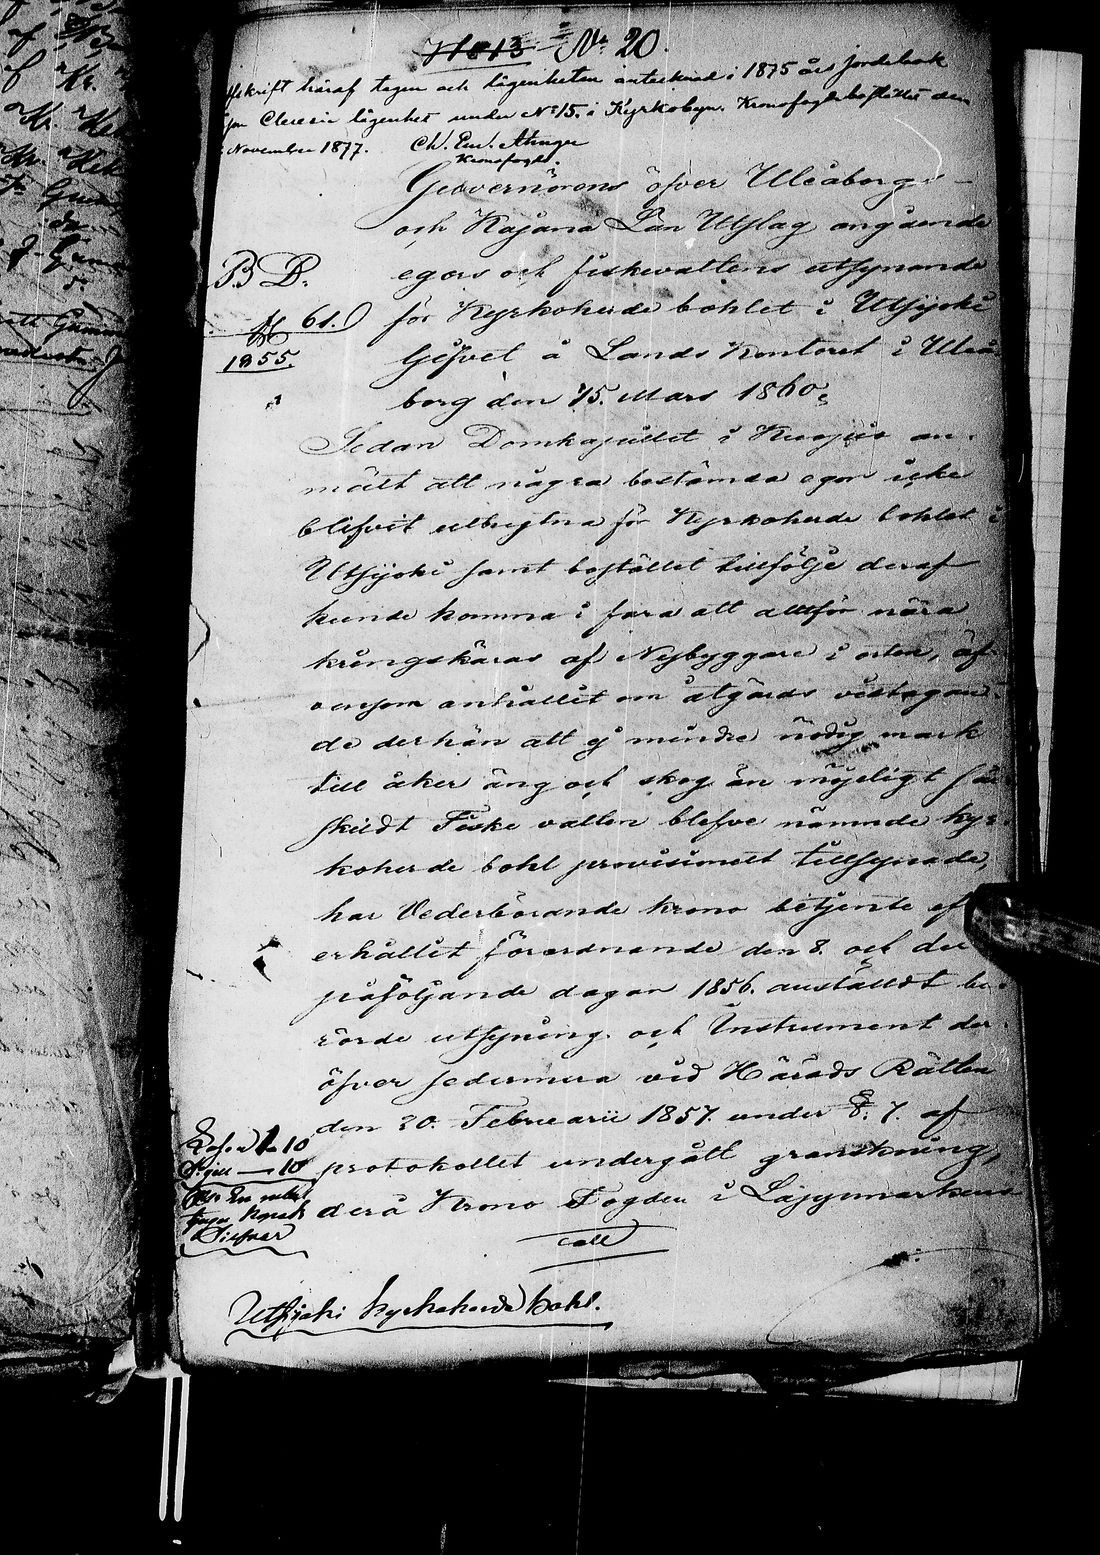 No 20.
afskrift häraf tagen och lägenheten antecknad i 1875 års jordebok
som Cleresie lägenhet under No 15. i Kyrkobyn. Kronofogdebostället den
November 1877. Ch. Em.
Kronofogde.
Gouvernörens öfver Uleåborgs
och Kajana Län Utslag angående
egors och fiskevattens utsynande
för Kyrkoherde bohlet i Utsjoki
Gifvet å Lands Kontoret i Uleå
borg den 15. Mars 1860.
B D.
No 61.
1855.
Sedan Domkapitlet i Kuopio an-
mält att några bestämda egor icke
blifvit utbrytna för Kyrkoherde bohlet i
Utsjoki samt bostället tillfölje deraf
kunde komma i fara att alltför nära
kringskäras af Nybyggare i orten, äf-
vensom anhållit om åtgärds vidtagan-
de derhän att ej mindre nödig mark
till åker äng och skog än möjeligt sär
skildt Fiske vatten blefve nämnde kyr-
koherde bohl provisionelt tillsynade,
har Vederbörande krono betjente eft
erhållit förordnande den 8. och der
påföljande dagar 1856. anställdt be-
rörde utsyning och Instrument der-
öfver sedermera vid Härads Rätten
den 20. Februarii 1857. under §. 7. af
protokollet undergått granskning,
derå Krono Fogden i Lappmarkens
Lösen 1 - 10
Sigill — 10
En rubel
Kopek
Silfver
Utsjoki kyrkoherde bohl.